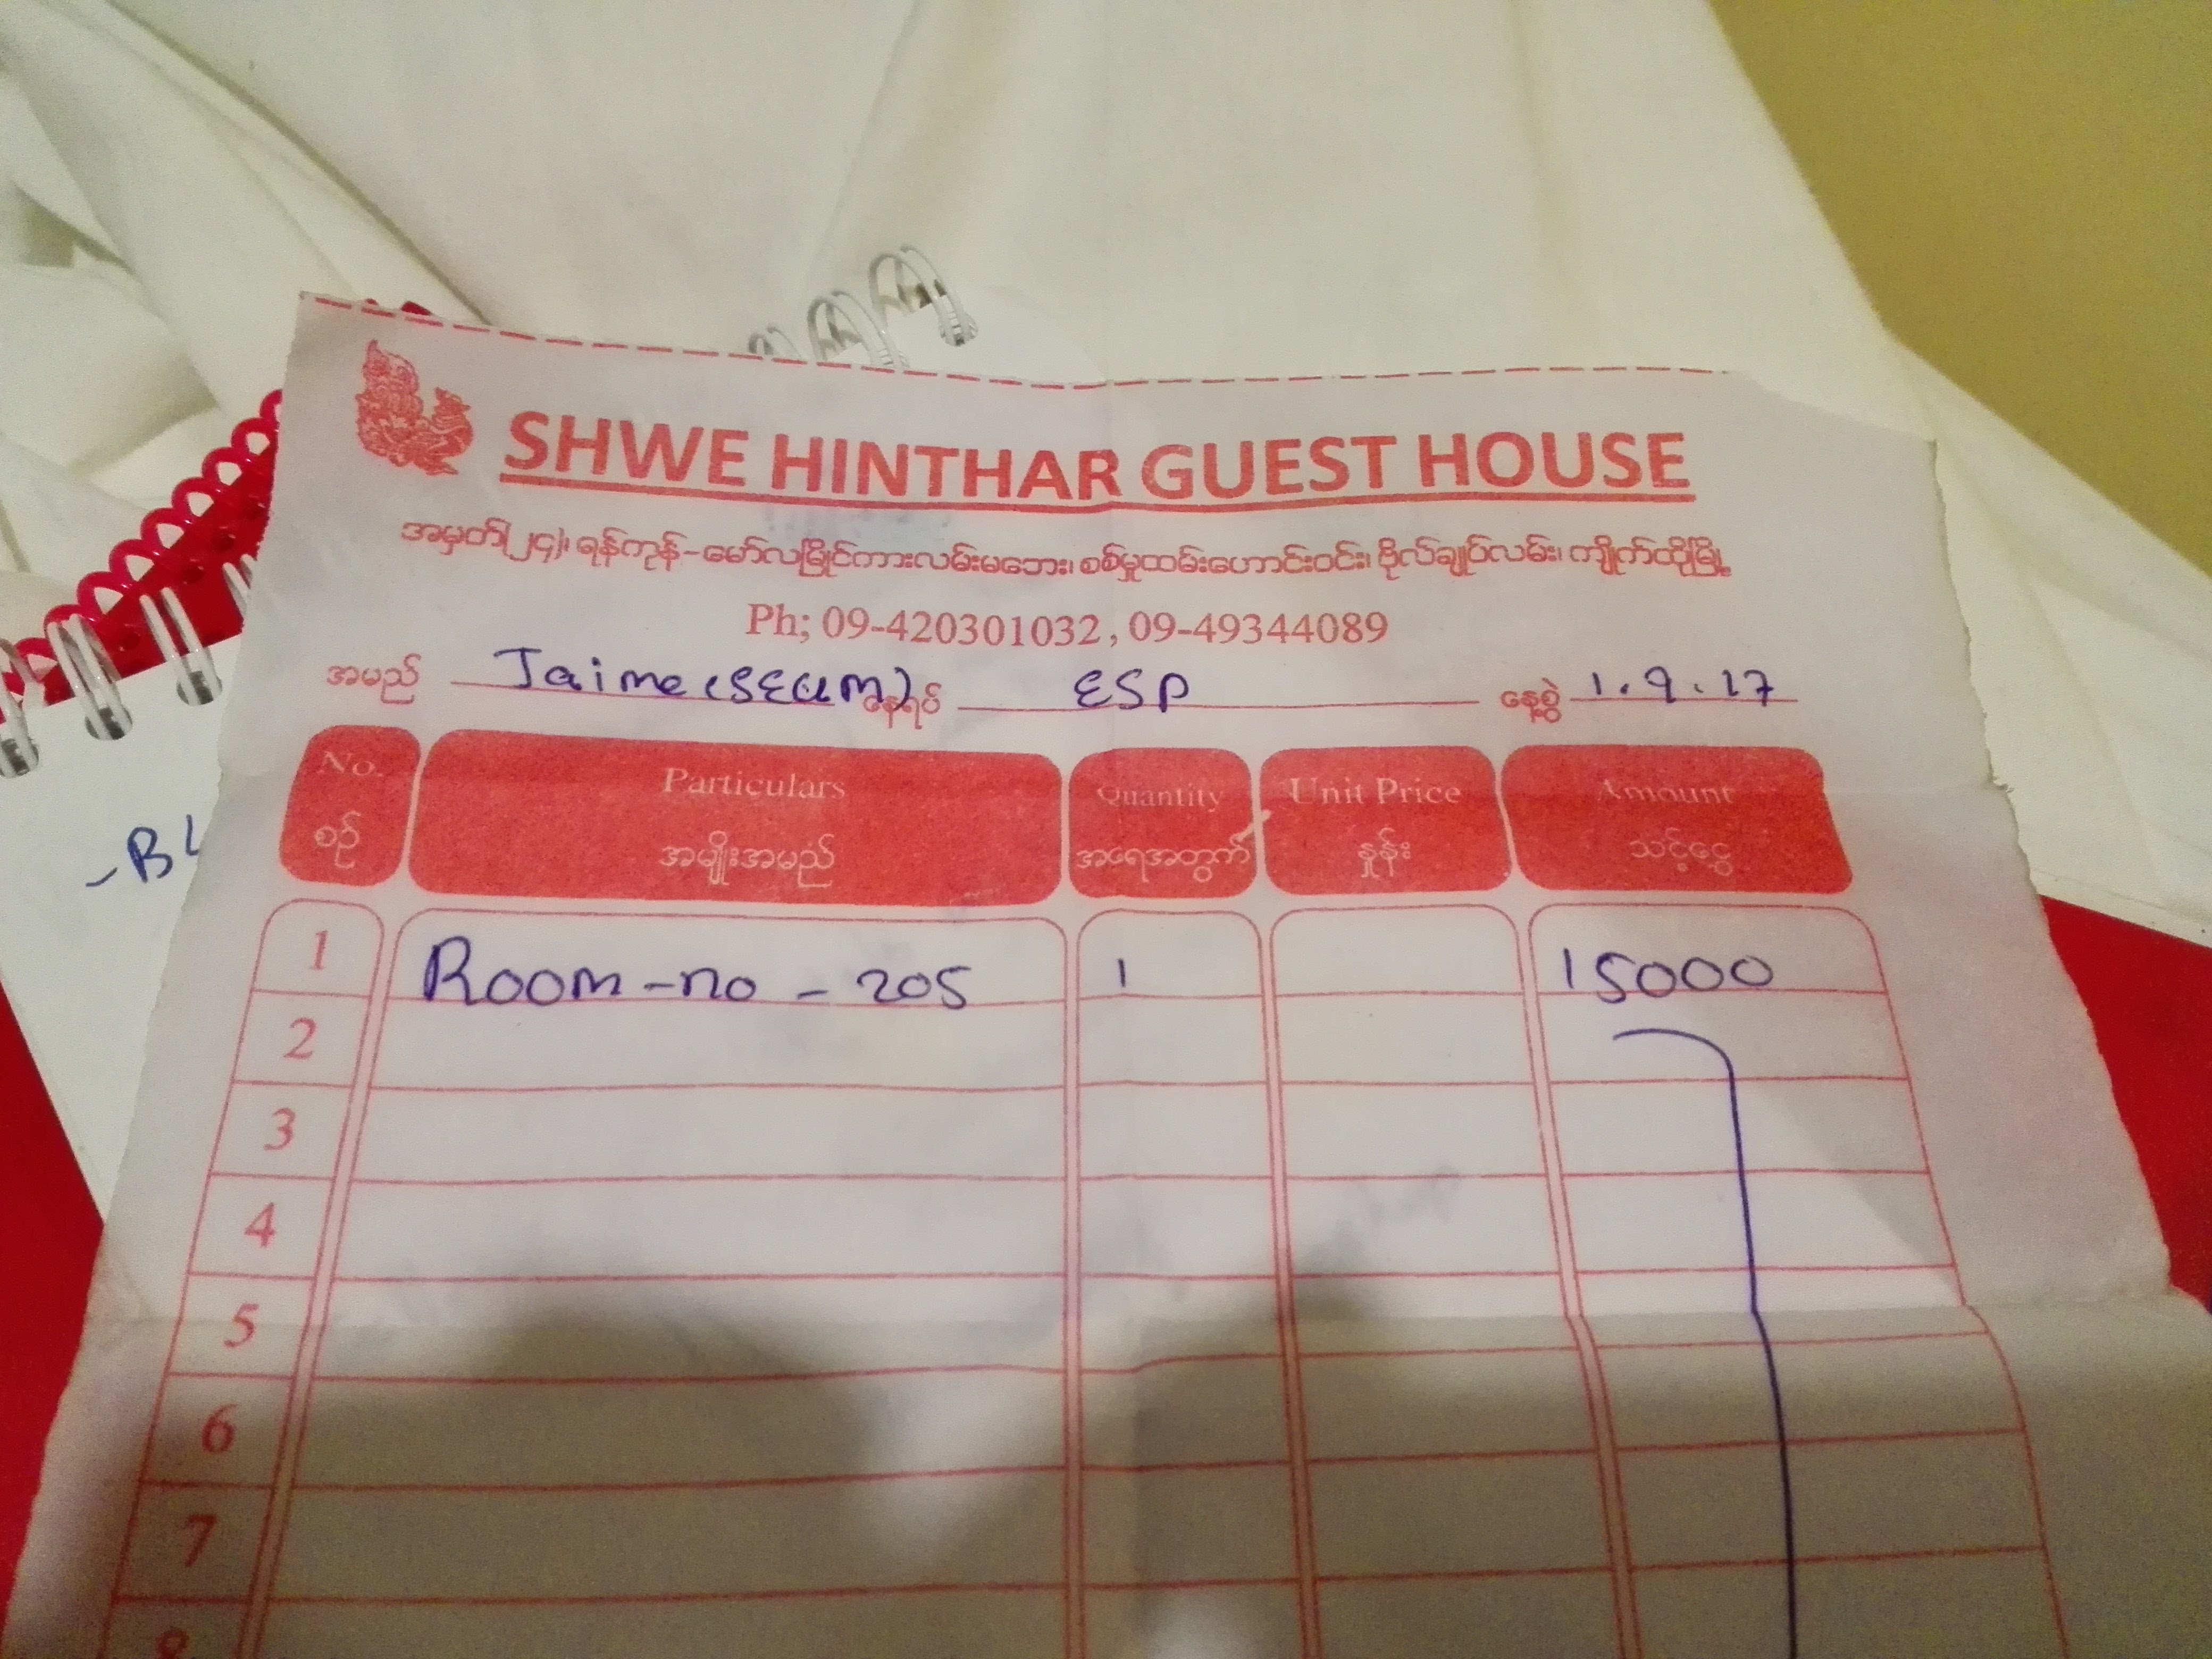 SHWE HINTHAR GUEST HOUSE
အမှတ်(၂၄)၊ ရန်ကုန်-မော်လမြိုင်ကားလမ်းမဘေး၊ စစ်မှုထမ်းဟောင်းဝင်း၊ ဗိုလ်ချုပ်လမ်း၊ ကျိုက်ထိုမြို့
Ph; 09-420301032, 09-49344089
အမည် Jaime နေရပ် ESP နေ့စွဲ 1.9.17
No. Particulars Quantity Unit Price Amount
စဉ် အမျိုးအမည် အရေအတွက် နှုန်း သင့်ငွေ
1 Room-no-205 1 15000
2
3
4
5
6
7
8
-B